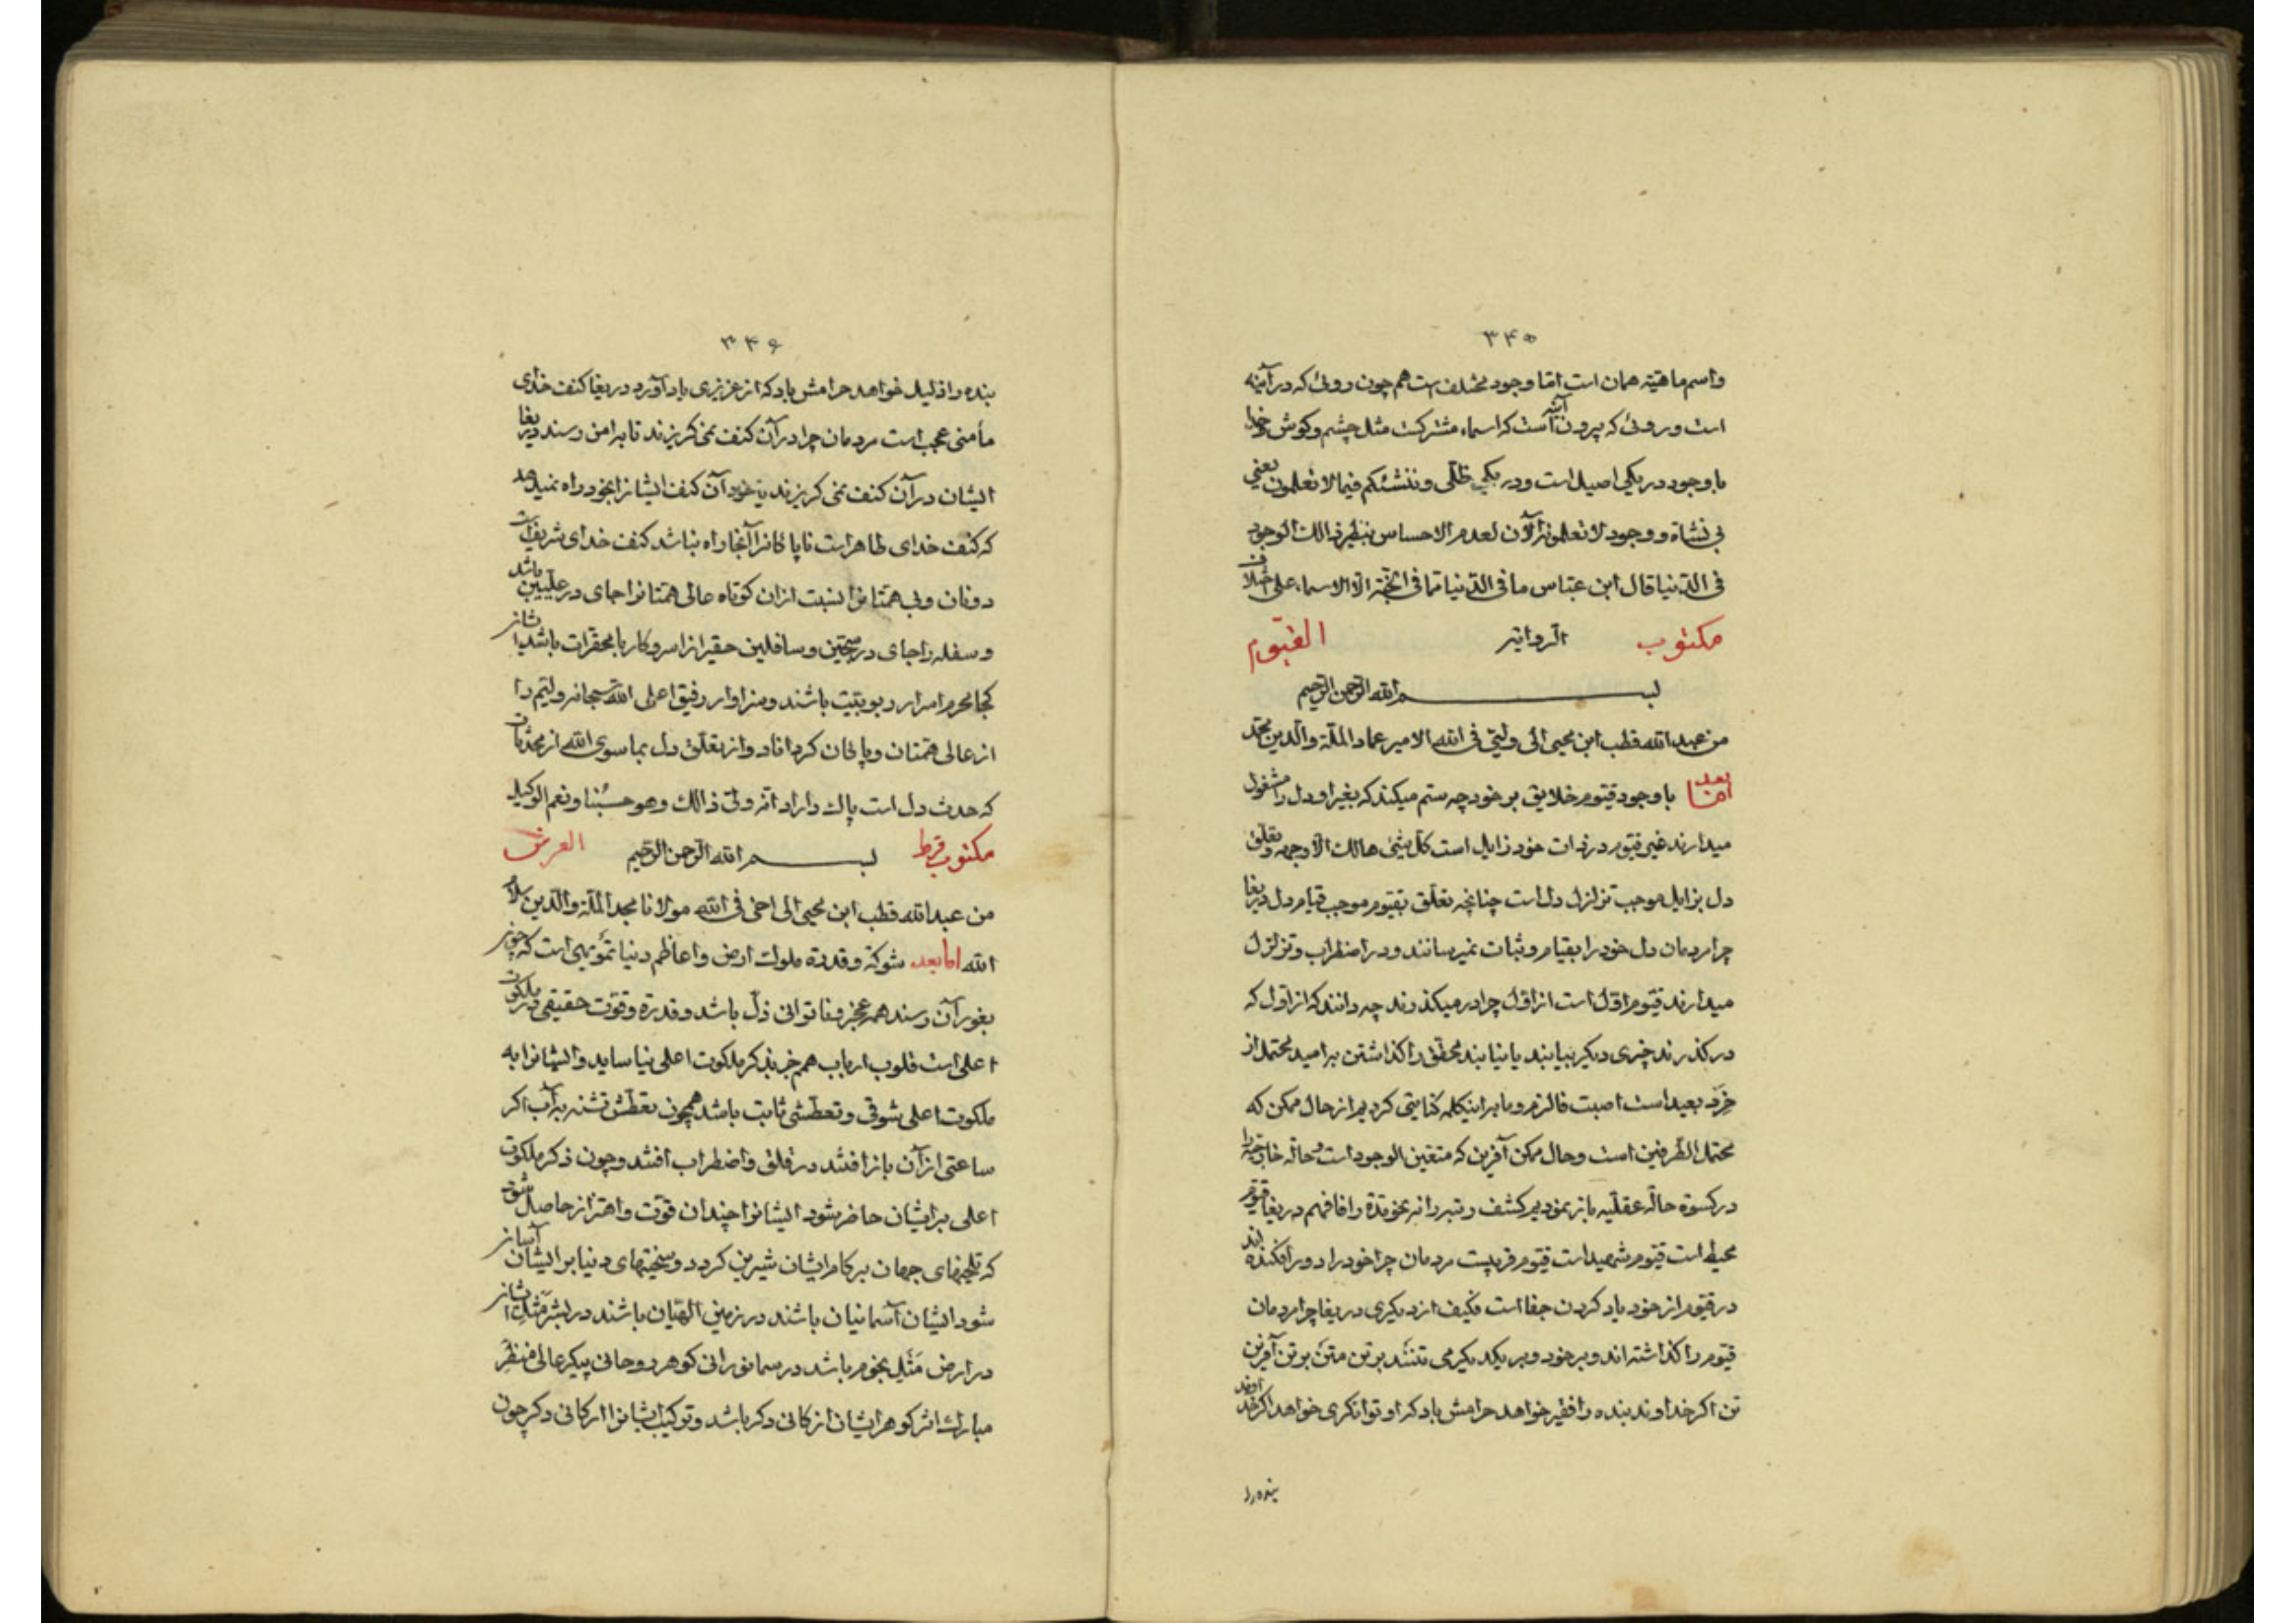 ۳۴۵
واسم ماهیّة همان است امّا وجود مختلف است هم چون روئی که در آینه
است و روئی که بیرون آینه است که اسماء مشترکت مثل چشم و کوش خدا
با وجود در یکی اصیل است و در یکی ظلّی و ننشئکم فیما لا تعلمون یعنی
فی نشاة و وجود لا تعلمونه الآن لعدم الاحساس بنظیر ذالك الوجود
فی الدّنیا قال ابن عبّاس ما فی الدّنیا ممّا فی الجنّة الّا الاسماء علی خلاف
مکتوب الروایه القیّوم
بسم الله الرّحمن الرّحیم
من عبد الله قطب ابن محیی الی ولیّی فی الله الامیر عماد الملّة والدّین محمّد
امّا بعد با وجود قیّوم خلایق بر خود چه ستم میکنند که بغیر او دل را مشغول
میدارند غیر قیّوم در ذات خود زایل است کلّ شیئ هالك الّا وجهه و تعلّق
دل بزایل موجب تزلزل دل است چنانچه تعلّق بقیّوم موجب قیام دل دریغا
چرا مردمان دل خود را بقیام و ثبات نمیرسانند و در اضطراب و تزلزل
میدارند قیّوم اوّل است از اوّل چرا در میکذرند چه دانند که از اوّل که
در کذرند چیزی دیکر بیابند یا نیابند محقّق را کذاشتن بر امید محتمل از
خرد بعید است اصبت فالزم و ما بر اینکلمه کنایتی کردیم از حال ممکن که
محتمل الطّرفین است و حال ممکن آفرین که متعیّن الوجود است و حالة خارجیّه را
در کسوة حالّه عقلیّه باز نمودیم کشف رتبر دانه بخوتدة رافافهم دریغا قیّوم
محیط است قیّوم شهید است قیّوم قریبست مردمان چرا خود را دور افکنده اند
در قیّوم از خود یاد کردن جفا است فکیف از دیکری دریغا چرا مردمان
قیّوم را کذاشته اند و بر خود و بر یکدیکر می تنند بر تن متن بر تن آفرین
تن اکر خداوند بنده را فقیر خواهد حرامش باد که او توانکری خواهد اکر خداوند
بنده را
۳۴۶
بنده را ذلیل خواهد حرامش باد که از عزیزی یاد آورد دریغا کنف خدای
مأمنی عجب است مردمان چرا در آن کنف نمی کریزند تا به امن رسند دریغا
ایشان در آن کنف نمی کریزند یا خود آن کنف ایشانرا بخود راه نمیدهد
که کنف خدای طاهر است ناپاکانرا آنجا راه نباشد کنف خدای شریف است
دونان و بی همّتانرا نسبت ازان کوتاه عالی همّتانرا جای در علّیّین باشد
و سفله را جای در سجّین و سافلین حقیرانرا سر و کار با محقّرات باشد ایشان
کجا محرم اسرار ربوبیّت باشند و سزاوار رفیق اعلی الله سبحانه ولیّم را
از عالی همّتان و پاکان کرداناد و از تعلّق دل بما سوی الله از محدثات
که حدث دل است پاك داراد انّه ولیّ ذالك وهو حسبنا ونعم الوکیل
مکتوب قرط بسم الله الرّحمن الرّحیم العرش
من عبد الله قطب ابن محیی الی اخی فی الله مولانا مجد الملّة والدّین سلام
الله اما بعد شوکة و قدرة ملوك ارض و اعاظم دنیا تمویهی است که چون
بغور آن رسند همه عجز و ناتوانی و ذلّ باشد و قدرة و قوّت حقیقی در ملکوت
اعلی است قلوب ارباب همم جز بذکر ملکوت اعلی نیاساید و ایشانرا به
ملکوت اعلی شوقی و تعطّشی ثابت باشد همچون تعطّش تشنه بر آب اکر
ساعتی از آن باز افتند در قلق و اضطراب افتند و چون ذکر ملکوت
اعلی بر ایشان حاضر شود ایشانرا چندان قوّت و اهتزاز حاصل شود
که تلخیهای جهان بر کام ایشان شیرین کردد و سختیهای دنیا بر ایشان آسان
شود ایشان آسمانیان باشند در زمین الهیّان باشند در بشر مثل ایشان
در ارض مثل نجوم باشد در سما نورانی کوهر روحانی پیکر عالی منظر
مبارك اثر کوهر ایشان از کانی دکر باشد و ترکیب ایشانرا ارکانی دکر چون